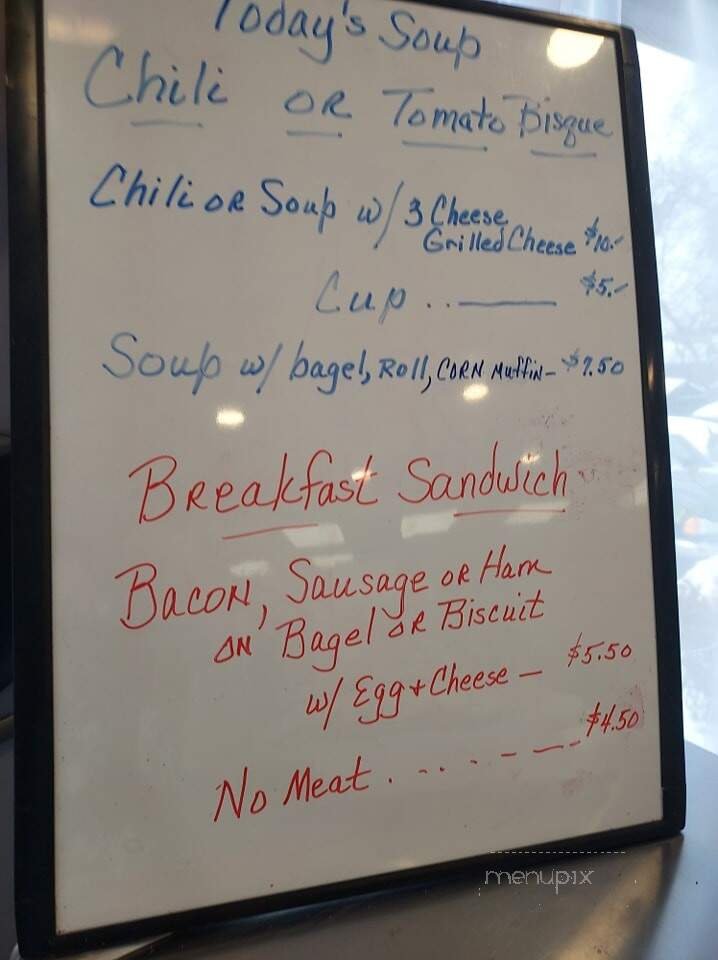 Today's Soup
Chili OR Tomato Bisque
Chili OR Soup w/ 3 Cheese
Grilled Cheese $10.-
Cup ..—— $5.-
Soup w/ bagel, Roll, CORN Muffin - $7.50
Breakfast Sandwich
BACON, Sausage OR Ham
ON Bagel OR Biscuit
w/ Egg + Cheese — $5.50
No Meat . - - - - — - $4.50
menupix